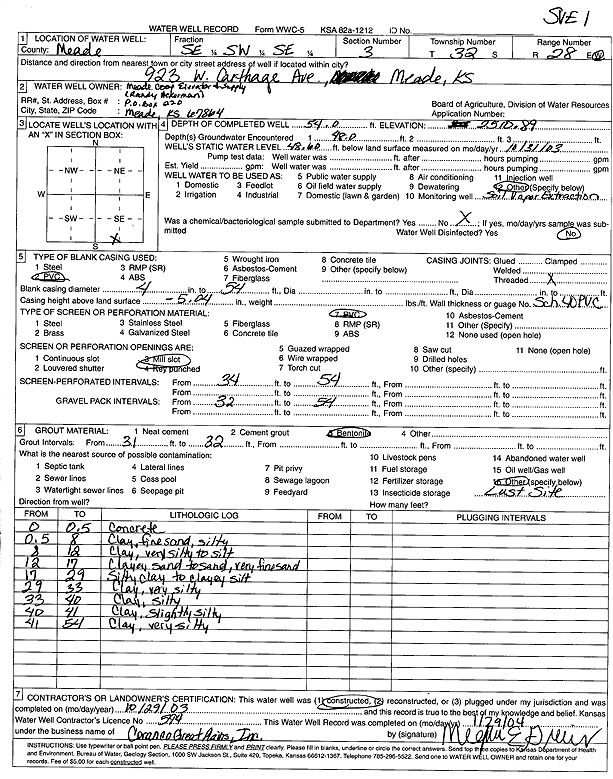 SVE 1
WATER WELL RECORD Form WWC-5 KSA 82a-1212 ID No.
1 LOCATION OF WATER WELL: Fraction Section Number Township Number Range Number
County: Meade SE ¼ SW ¼ SE ¼ 3 T 32 S R 28 E/W
Distance and direction from nearest town or city street address of well if located within city?
923 W. Carthage Ave., Meade, KS
2 WATER WELL OWNER: Meade Coop Elevator & Supply
(Randy Ackerman)
RR#, St. Address, Box # : P.O. Box 620 Board of Agriculture, Division of Water Resources
City, State, ZIP Code : Meade, KS 67864 Application Number:
3 LOCATE WELL'S LOCATION WITH AN "X" IN SECTION BOX:
N
NW NE
W E
SW SE
X
S
4 DEPTH OF COMPLETED WELL 54.0 ft. ELEVATION: 2510.89
Depth(s) Groundwater Encountered 1 48.0 ft. 2 ft. 3 ft.
WELL'S STATIC WATER LEVEL 48.60 ft. below land surface measured on mo/day/yr 10/31/03
Pump test data: Well water was ft. after hours pumping gpm
Est. Yield gpm: Well water was ft. after hours pumping gpm
WELL WATER TO BE USED AS: 5 Public water supply 8 Air conditioning 11 Injection well
1 Domestic 3 Feedlot 6 Oil field water supply 9 Dewatering 12 Other (Specify below)
2 Irrigation 4 Industrial 7 Domestic (lawn & garden) 10 Monitoring well Soil Vapor Extraction
Was a chemical/bacteriological sample submitted to Department? Yes No X ; If yes, mo/day/yrs sample was submitted Water Well Disinfected? Yes No
5 TYPE OF BLANK CASING USED: 5 Wrought iron 8 Concrete tile CASING JOINTS: Glued Clamped
1 Steel 3 RMP (SR) 6 Asbestos-Cement 9 Other (specify below) Welded
2 PVC 4 ABS 7 Fiberglass Threaded X
Blank casing diameter 4 in. to 54 ft., Dia in. to ft., Dia in. to ft.
Casing height above land surface -5.04 in., weight lbs./ft. Wall thickness or guage No. Sch. 40 PVC
TYPE OF SCREEN OR PERFORATION MATERIAL: 7 PVC 10 Asbestos-Cement
1 Steel 3 Stainless Steel 5 Fiberglass 8 RMP (SR) 11 Other (Specify)
2 Brass 4 Galvanized Steel 6 Concrete tile 9 ABS 12 None used (open hole)
SCREEN OR PERFORATION OPENINGS ARE: 5 Guazed wrapped 8 Saw cut 11 None (open hole)
1 Continuous slot 3 Mill slot 6 Wire wrapped 9 Drilled holes
2 Louvered shutter 4 Key punched 7 Torch cut 10 Other (specify) ft.
SCREEN-PERFORATED INTERVALS: From 34 ft. to 54 ft., From ft. to ft.
From ft. to ft., From ft. to ft.
GRAVEL PACK INTERVALS: From 32 ft. to 54 ft., From ft. to ft.
From ft. to ft., From ft. to ft.
6 GROUT MATERIAL: 1 Neat cement 2 Cement grout 3 Bentonite 4 Other
Grout Intervals: From 31 ft. to 32 ft., From ft. to ft., From ft. to ft.
What is the nearest source of possible contamination: 10 Livestock pens 14 Abandoned water well
1 Septic tank 4 Lateral lines 7 Pit privy 11 Fuel storage 15 Oil well/Gas well
2 Sewer lines 5 Cess pool 8 Sewage lagoon 12 Fertilizer storage 16 Other (specify below)
3 Watertight sewer lines 6 Seepage pit 9 Feedyard 13 Insecticide storage Lust Site
Direction from well? How many feet?
FROM TO LITHOLOGIC LOG FROM TO PLUGGING INTERVALS
0 0.5 Concrete
0.5 8 Clay, fine sand, silty
8 12 Clay, very silty to silt
12 17 Clayey sand to sand, very fine sand
17 29 Silty clay to clayey silt
29 33 Clay, very silty
33 40 Clay, silty
40 41 Clay, slightly silty
41 54 Clay, very silty
7 CONTRACTOR'S OR LANDOWNER'S CERTIFICATION: This water well was (1) constructed, (2) reconstructed, or (3) plugged under my jurisdiction and was
completed on (mo/day/year) 10/29/03 and this record is true to the best of my knowledge and belief. Kansas
Water Well Contractor's Licence No 594 This Water Well Record was completed on (mo/day/yr) 1/29/04
under the business name of Coranco Great Plains, Inc. by (signature)
INSTRUCTIONS: Use typewriter or ball point pen. PLEASE PRESS FIRMLY and PRINT clearly. Please fill in blanks, underline or circle the correct answers. Send top three copies to Kansas Department of Health
and Environment, Bureau of Water, Geology Section, 1000 SW Jackson St., Suite 420, Topeka, Kansas 66612-1367. Telephone 785-296-5522. Send one to WATER WELL OWNER and retain one for your
records. Fee of $5.00 for each constructed well.